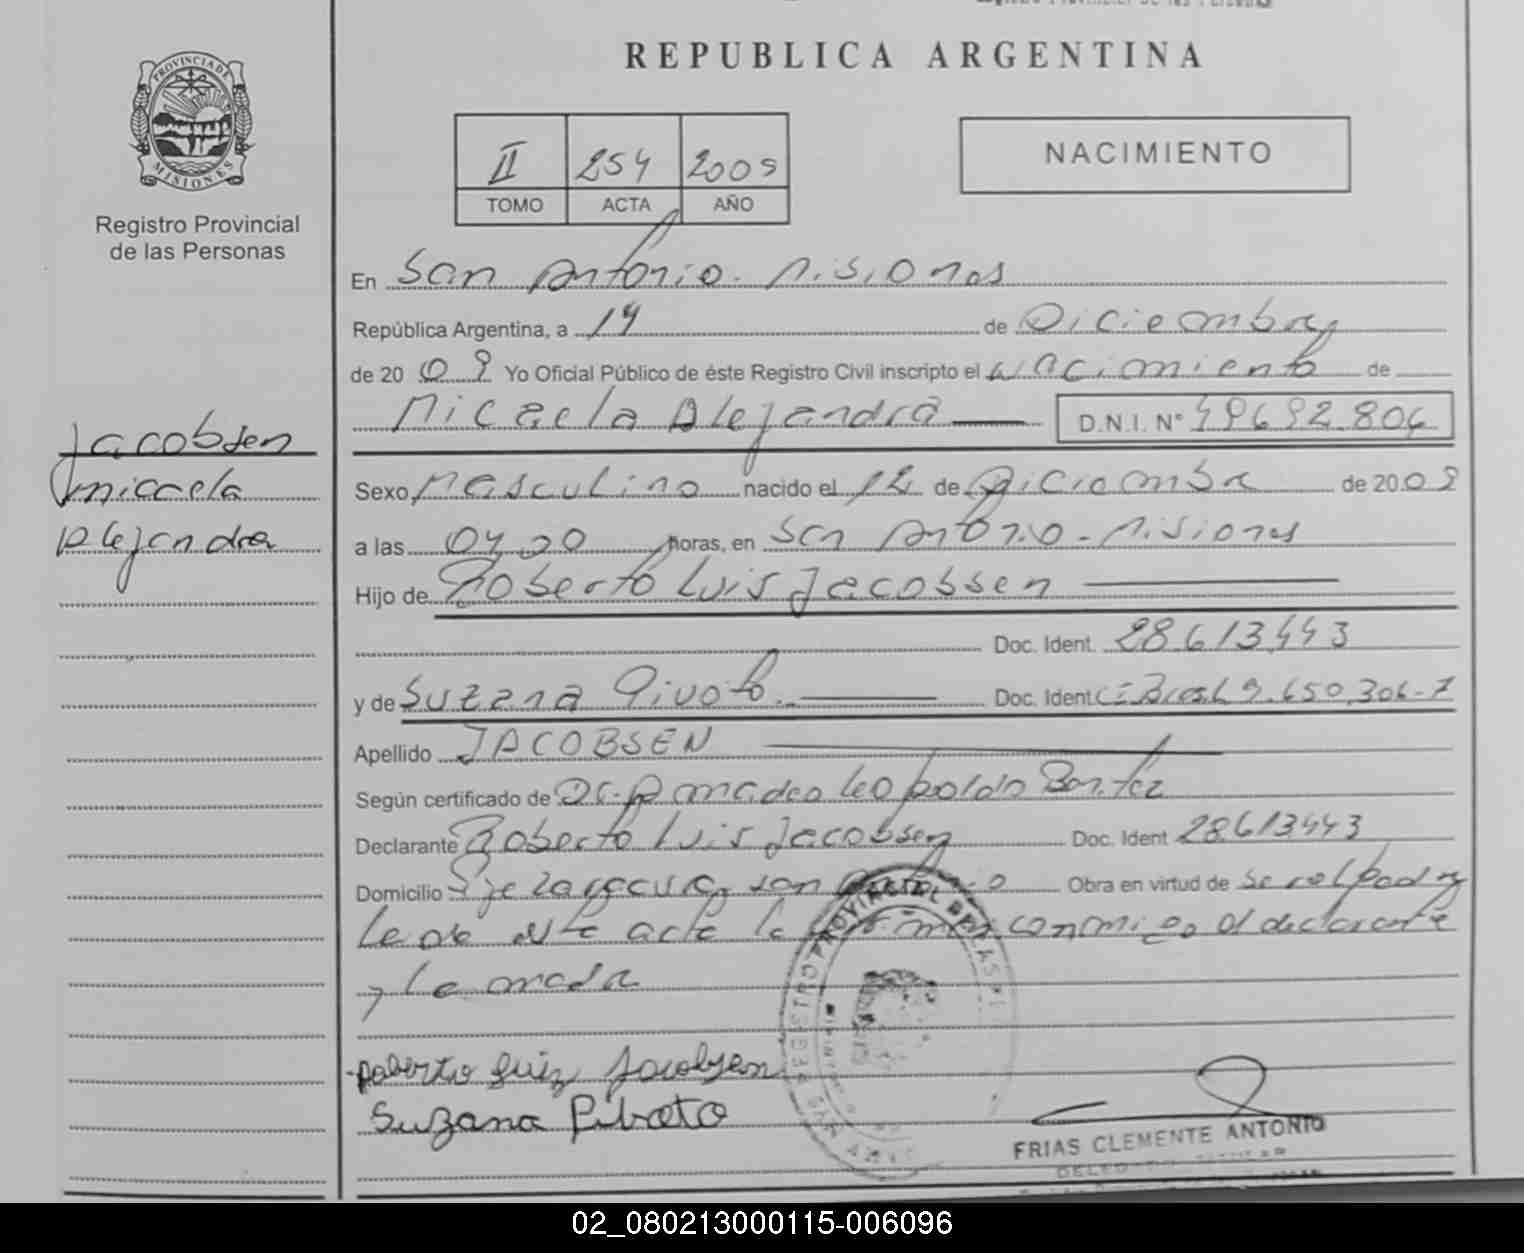 REPUBLICA ARGENTINA
PROVINCIA DE
MISIONES
Registro Provincial
de las Personas
II 254 2009
TOMO ACTA AÑO
NACIMIENTO
En San Antonio - Misiones
República Argentina, a 14 de Diciembre
de 20 09 Yo Oficial Público de éste Registro Civil inscripto el Nacimiento de
Micaela Alejandra D.N.I. Nº 49692.804
Jacobsen
Micaela
Alejandra
Sexo Masculino nacido el 12 de Diciembre de 20 09
a las 04,20 horas, en San Antonio - Misiones
Hijo de Roberto Luis Jacobsen
Doc. Ident. 28.613.443
y de Suzana Pivoto Doc. Ident CI Brasil 9.650.306-7
Apellido JACOBSEN
Según certificado de Dr. Amadeo Leopoldo Benitez
Declarante Roberto Luis Jacobsen Doc. Ident 28.613443
Domicilio San Antonio Obra en virtud de ser el padre
Leida esta acta la firman conmigo el declarante
y la madre
Roberto Luiz Jacobsen
Suzana Pivoto
REGISTRO PROVINCIAL DE LAS
FRIAS CLEMENTE ANTONIO
02_080213000115-006096